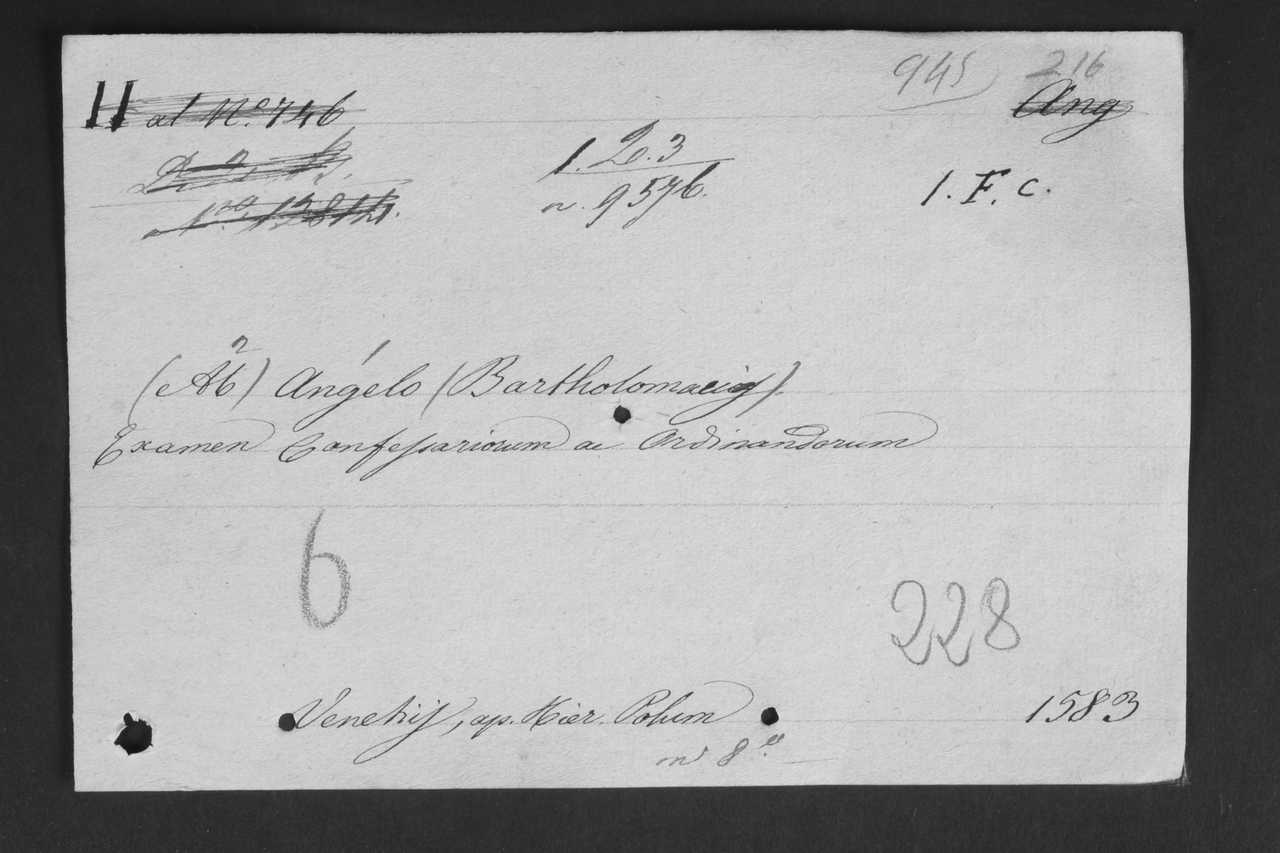 945 216
II al N.o 746 Ang
1. 2o. 3
n. 9576. 1. F. c.
2 1
(Ab) Angelo (Bartholomaeus)
Examen Confessariorum ac Ordinandorum
6
228
Venetijs, ap. Hier. Polum 1583
in 8.o